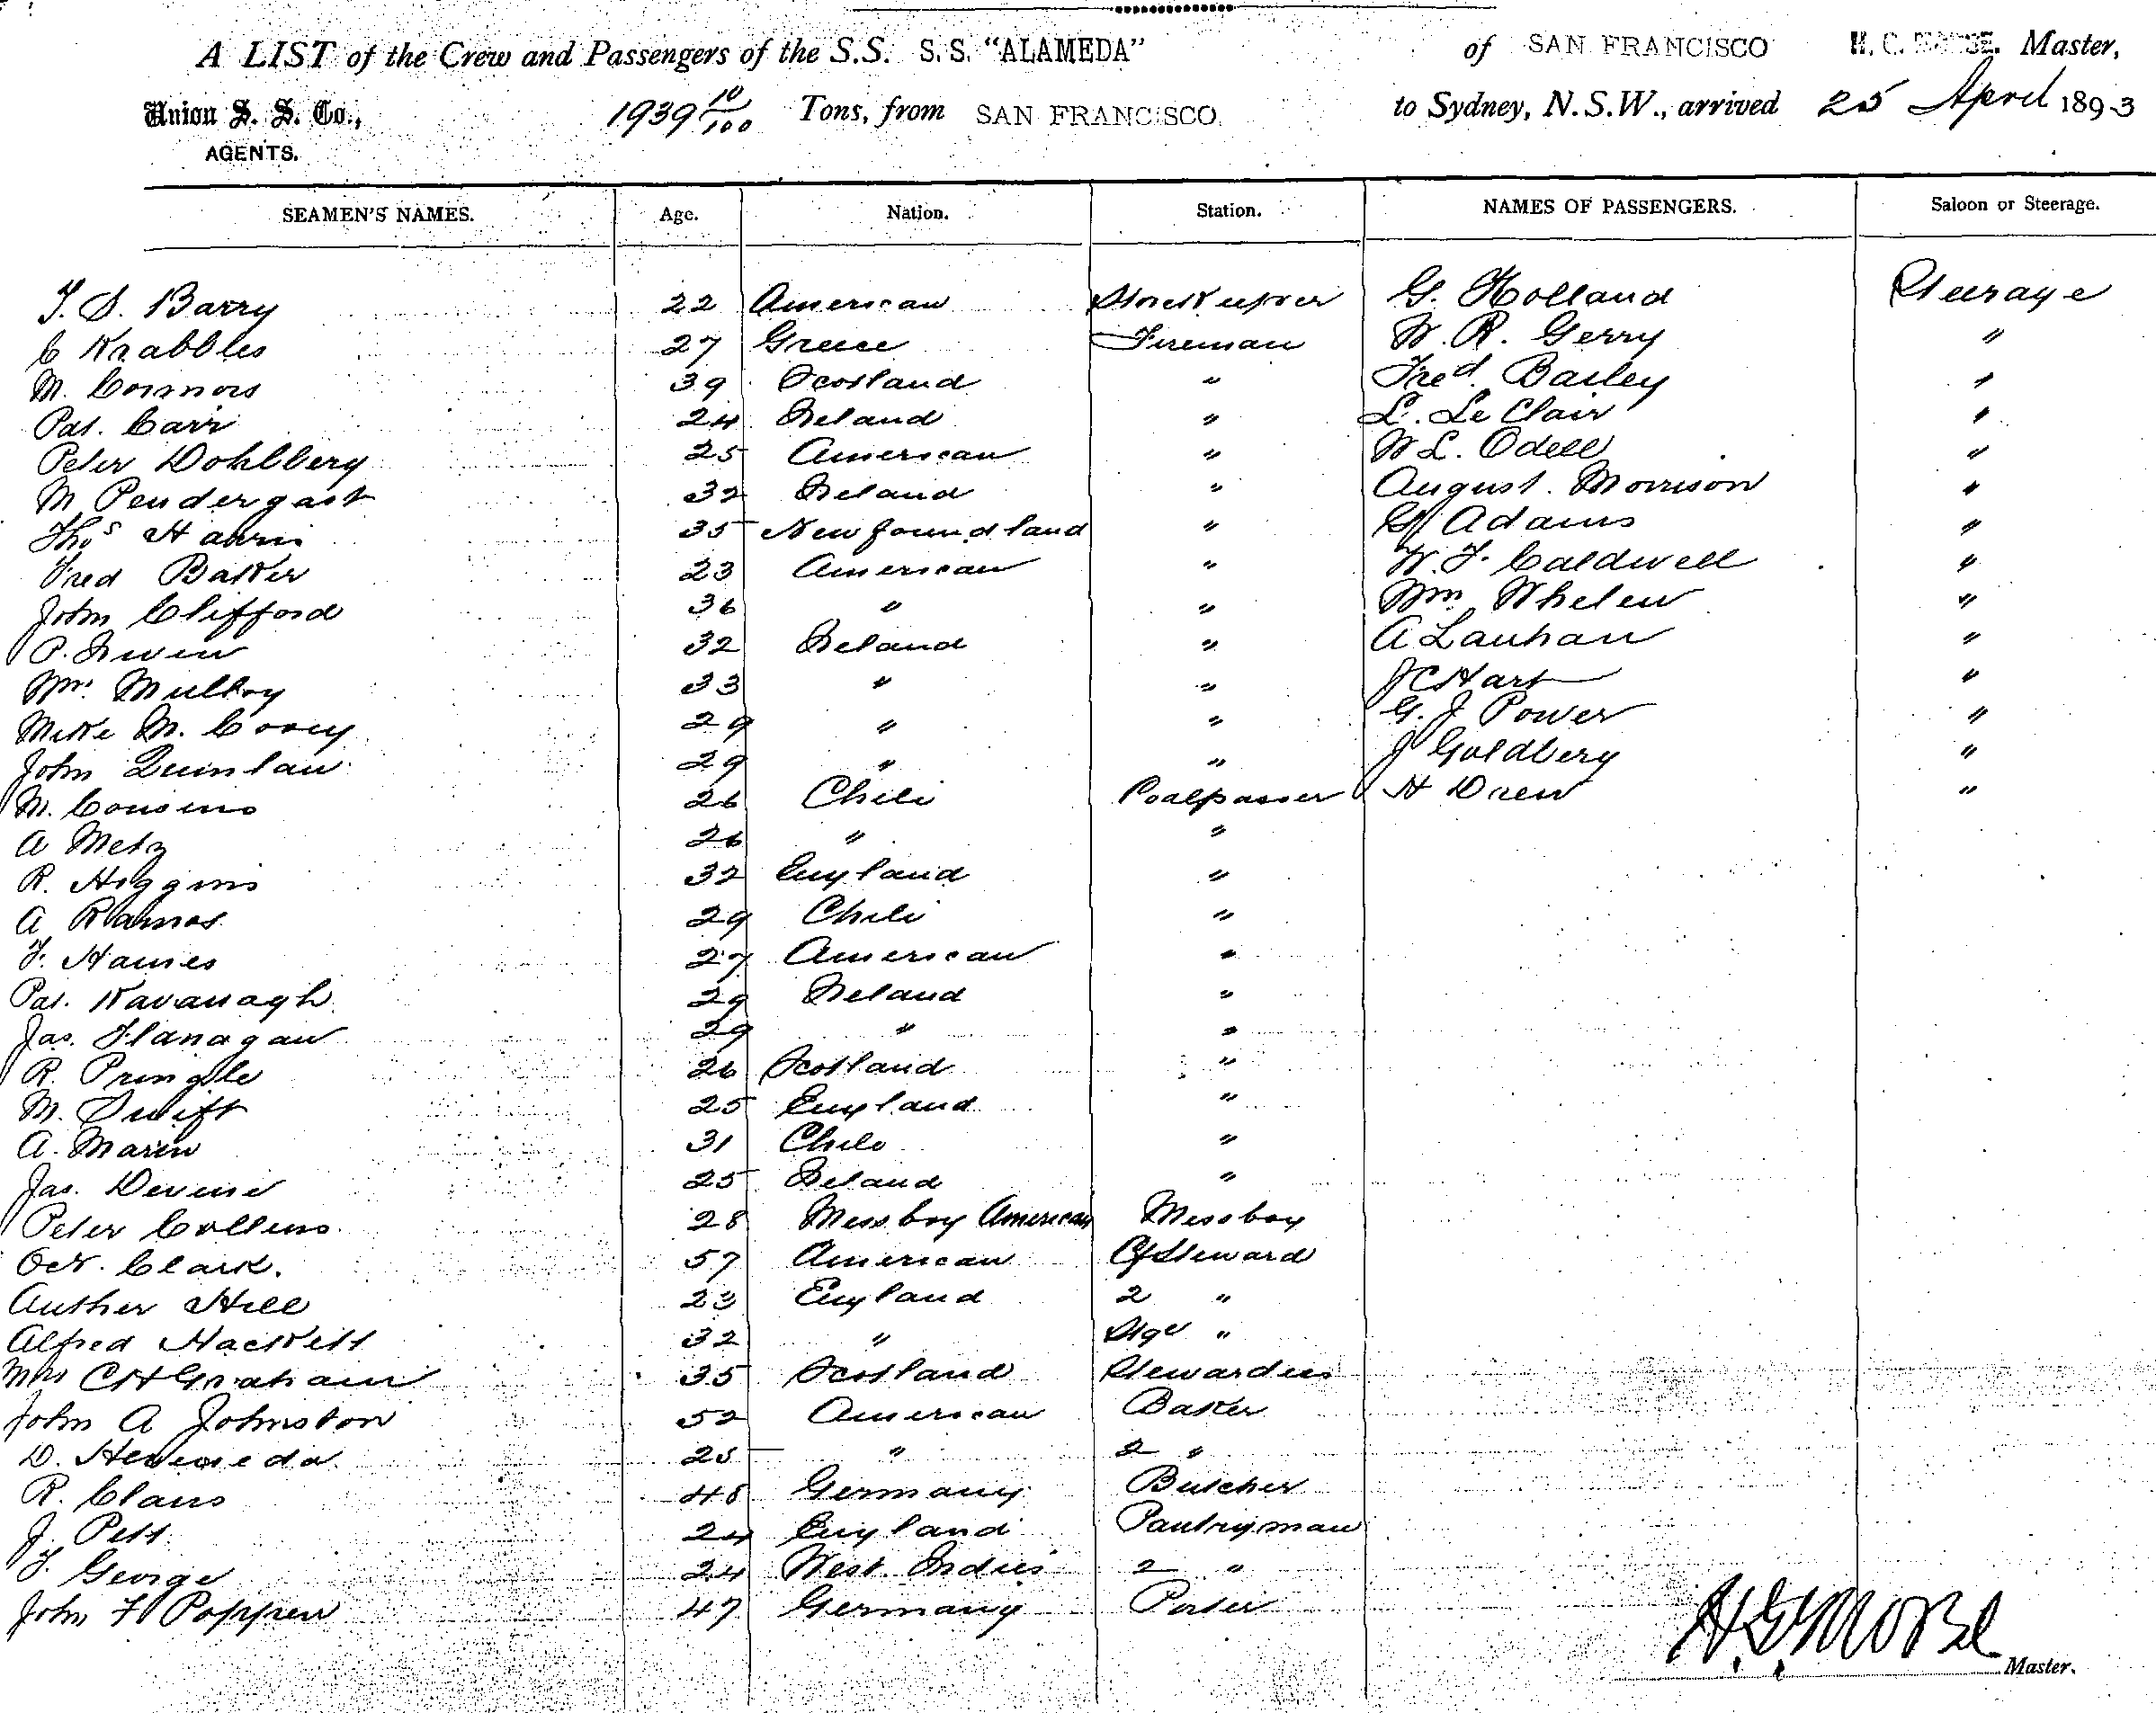 A LIST of the Crew and Passengers of the S.S. S.S. "ALAMEDA" of SAN FRANCISCO H. C. Master,
Union S. S. Co., 1939 10/100 Tons, from SAN FRANCISCO to Sydney, N.S.W., arrived 25 April 1893
AGENTS.
SEAMEN'S NAMES. Age. Nation. Station. NAMES OF PASSENGERS. Saloon or Steerage.
T. S. Barry 22 American Storekeeper G. Holland Steerage
C Krabbles 27 Greece Fireman W. R. Gerry "
M. Connors 39 Scotland " Fred. Bailey "
Pat. Carr 24 Ireland " L. Le Clair "
Peter Dohlberg 25 American " W L. Odell "
M Pendergast 32 Ireland " August. Morrison "
Thos Harris 35 Newfoundland " Adams "
Fred Baker 23 American " W. F. Caldwell "
John Clifford 36 " " Wm Whelen "
P. 32 Ireland " A Lanhan "
Wm. Mulloy 33 " " J C Hart "
Mike M. 29 " " G. J Power "
John Quinlan 29 " " J Goldberg "
M. Cousins 26 Chili Coalpasser H Drew "
A Metz 26 " "
R. Higgins 32 England "
A Ramos 29 Chili "
F. Haines 27 American "
Pat. Kavanagh 29 Ireland "
Jas. Flanagan 29 " "
R. Pringle 26 Scotland "
M. Swift 25 England "
A. Marin 31 Chile "
Jas. Devine 25 Ireland "
Peter Collins 28 Messboy American Messboy
Oct. Clark. 57 American Cf Steward
Auther Hill 23 England 2 "
Alfred Hackett 32 " Stge "
Mrs C H Graham 35 Scotland Stewardess
John A Johnston 52 American Baker
D. 25 " 2 "
R. Claus 48 Germany Butcher
J. Pett 24 England Pantryman
T. George 24 West. Indies 2 "
John F Poppen 47 Germany Porter
H. G. Morse
Master.